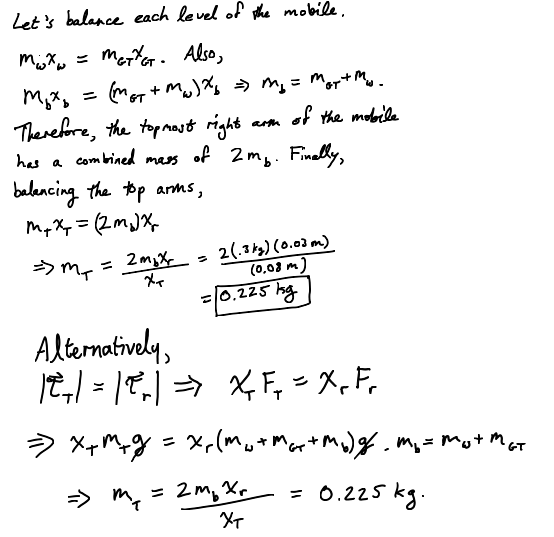 Let's balance each level of the mobile.
m_w x_w = m_GT x_GT. Also,
m_b x_b = (m_GT + m_w) x_b ⇒ m_b = m_GT + m_w.
Therefore, the topmost right arm of the mobile
has a combined mass of 2m_b. Finally,
balancing the top arms,
m_T x_T = (2m_b) x_r
⇒ m_T = 2m_b x_r / x_T = 2(.3 kg)(0.03 m) / (0.08 m)
= 0.225 kg
Alternatively,
|τ⃗_T| = |τ⃗_r| ⇒ x_T F_T = x_r F_r
⇒ x_T m_T g = x_r (m_w + m_GT + m_b) g. m_b = m_w + m_GT
⇒ m_T = 2m_b x_r / x_T = 0.225 kg.